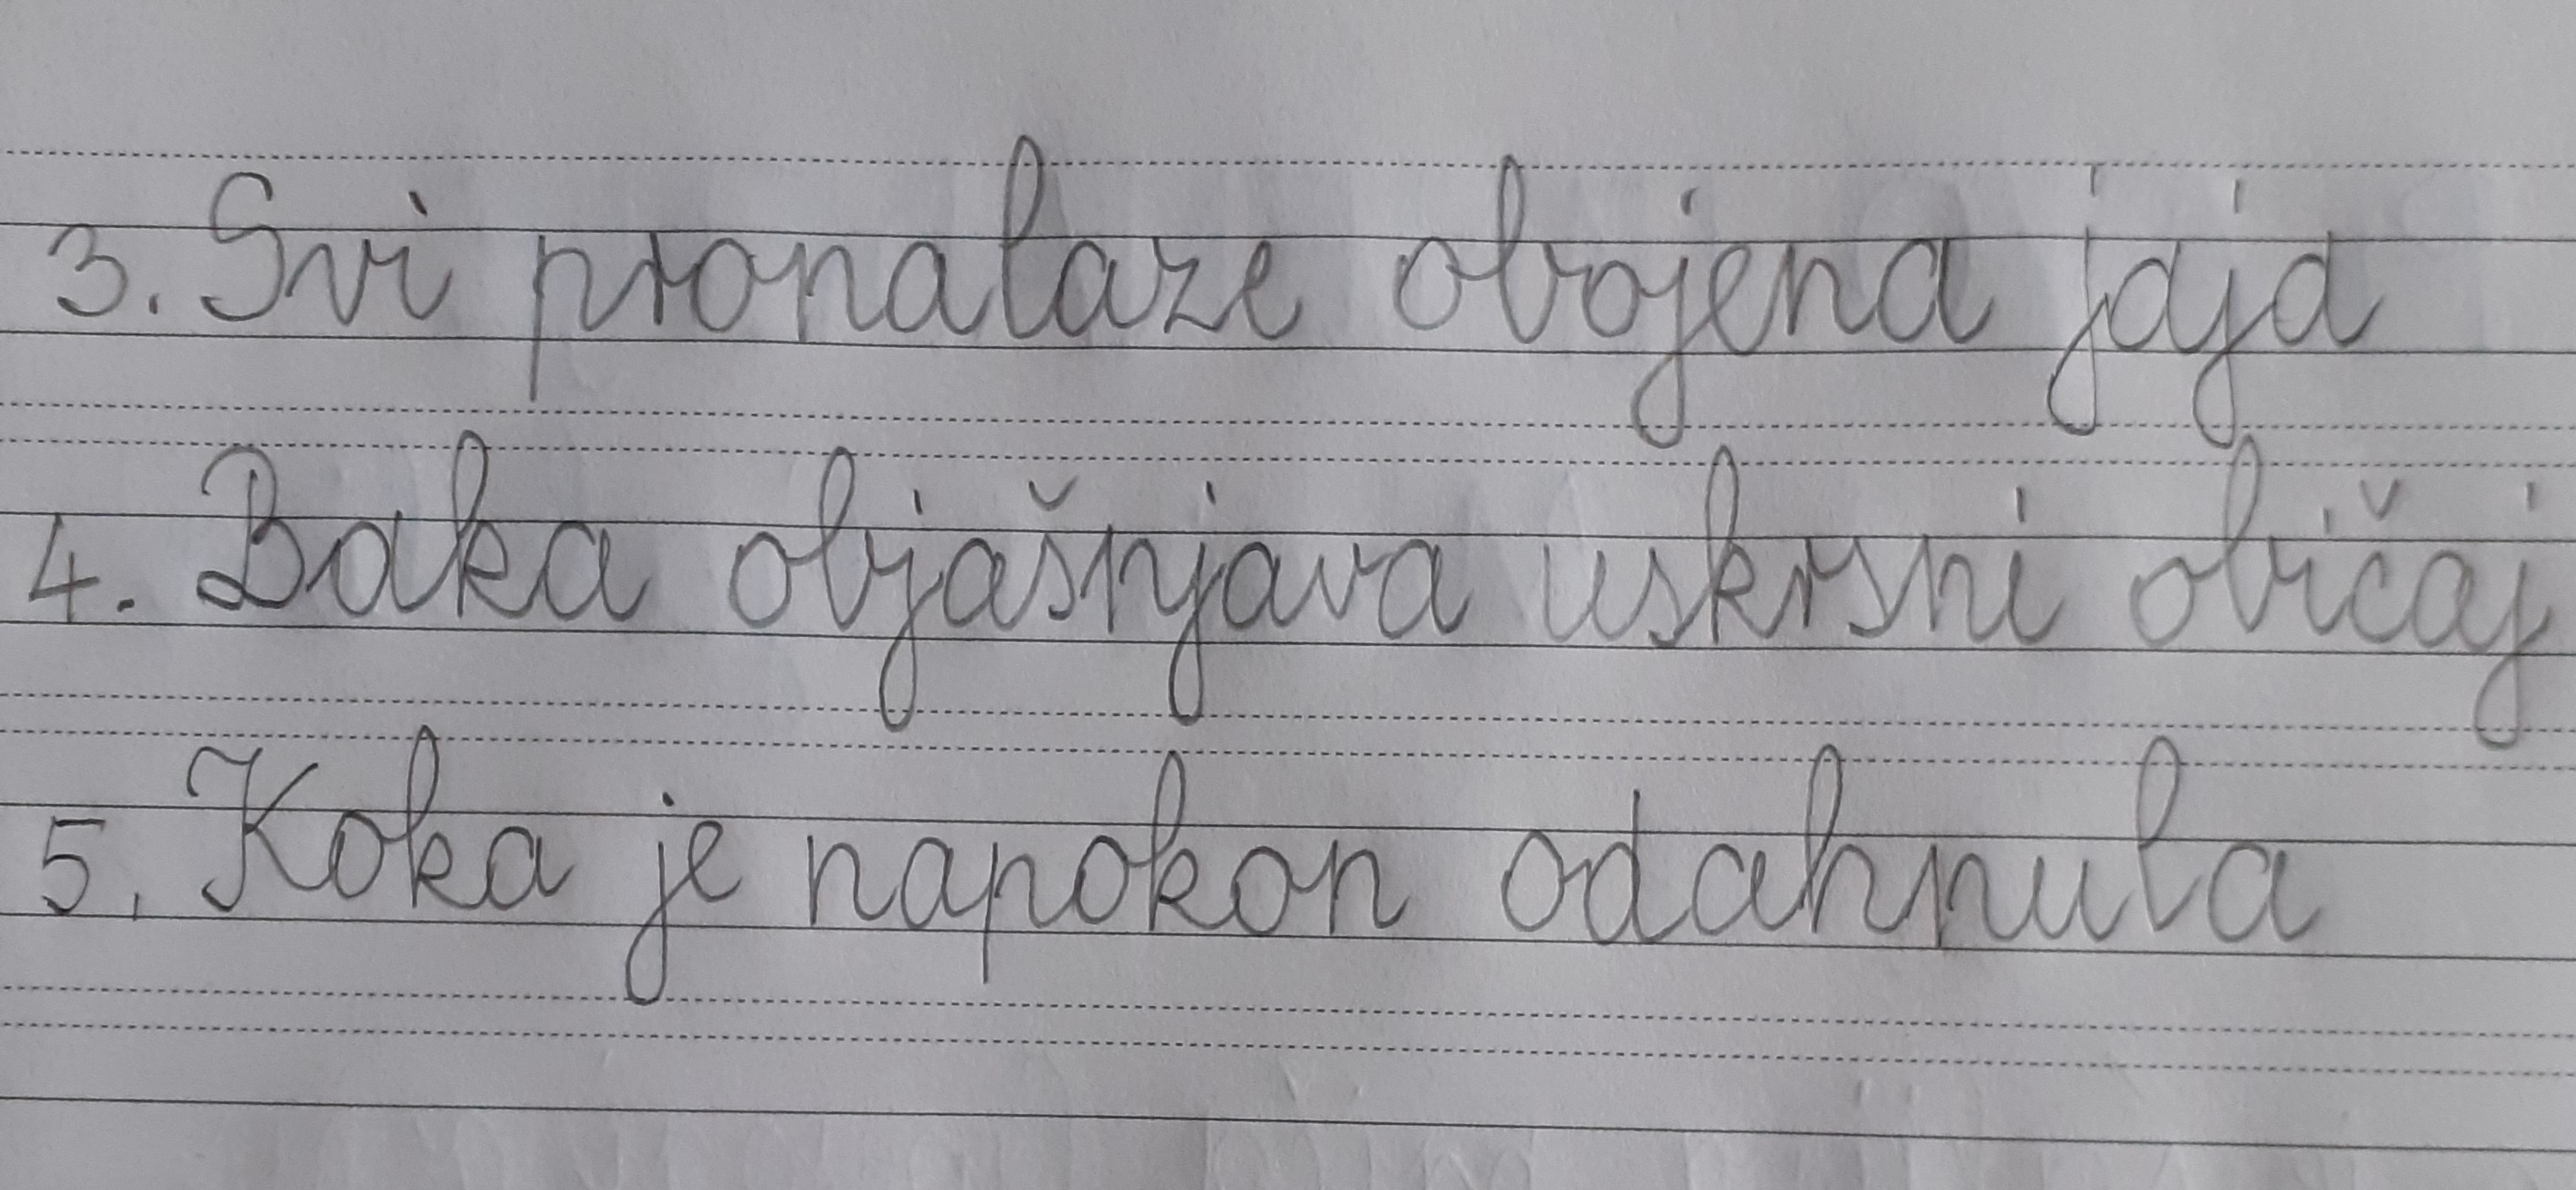 3. Svi pronalaze obojena jaja
4. Baka objašnjava uskrsni običaj
5. Koka je napokon odahnula